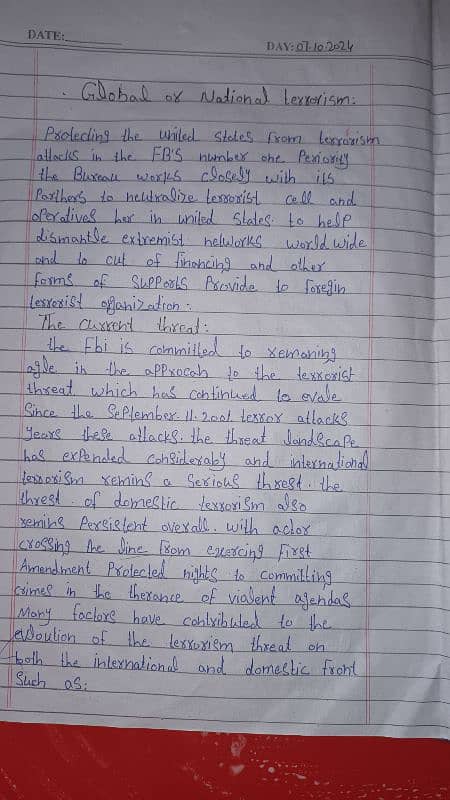 DATE:
DAY: 07.10.2024
Global or National terrorism:
Protecting the united states from terrorism
attacks in the FB'S number one Periority
the Bureau works closely with its
Parthers to neutralize terrorist cell and
operatives her in united states. to help
dismantle extremist networks world wide
and to cut of financing and other
forms of supports Provide to foregin
terrorist oganization:
The current threat:
the Fbi is committed to remaning
agle in the approcah to the terrorist
threat. which has continued to evale
Since the September. 11. 2001 terror attacks
years these attacks. the threat landscape
has expended considerably and international
terrorism remins a Serious threst. the
threst. of domestic terrorism also
remins Persistent overall. with actor
crossing the line from excercing First
Amendment Protected rights to committing
crimes in the therance of vialent agendas
Many factors have contributed to the
evoultion of the terrorism threat on
both the international and domestic front
Such as: